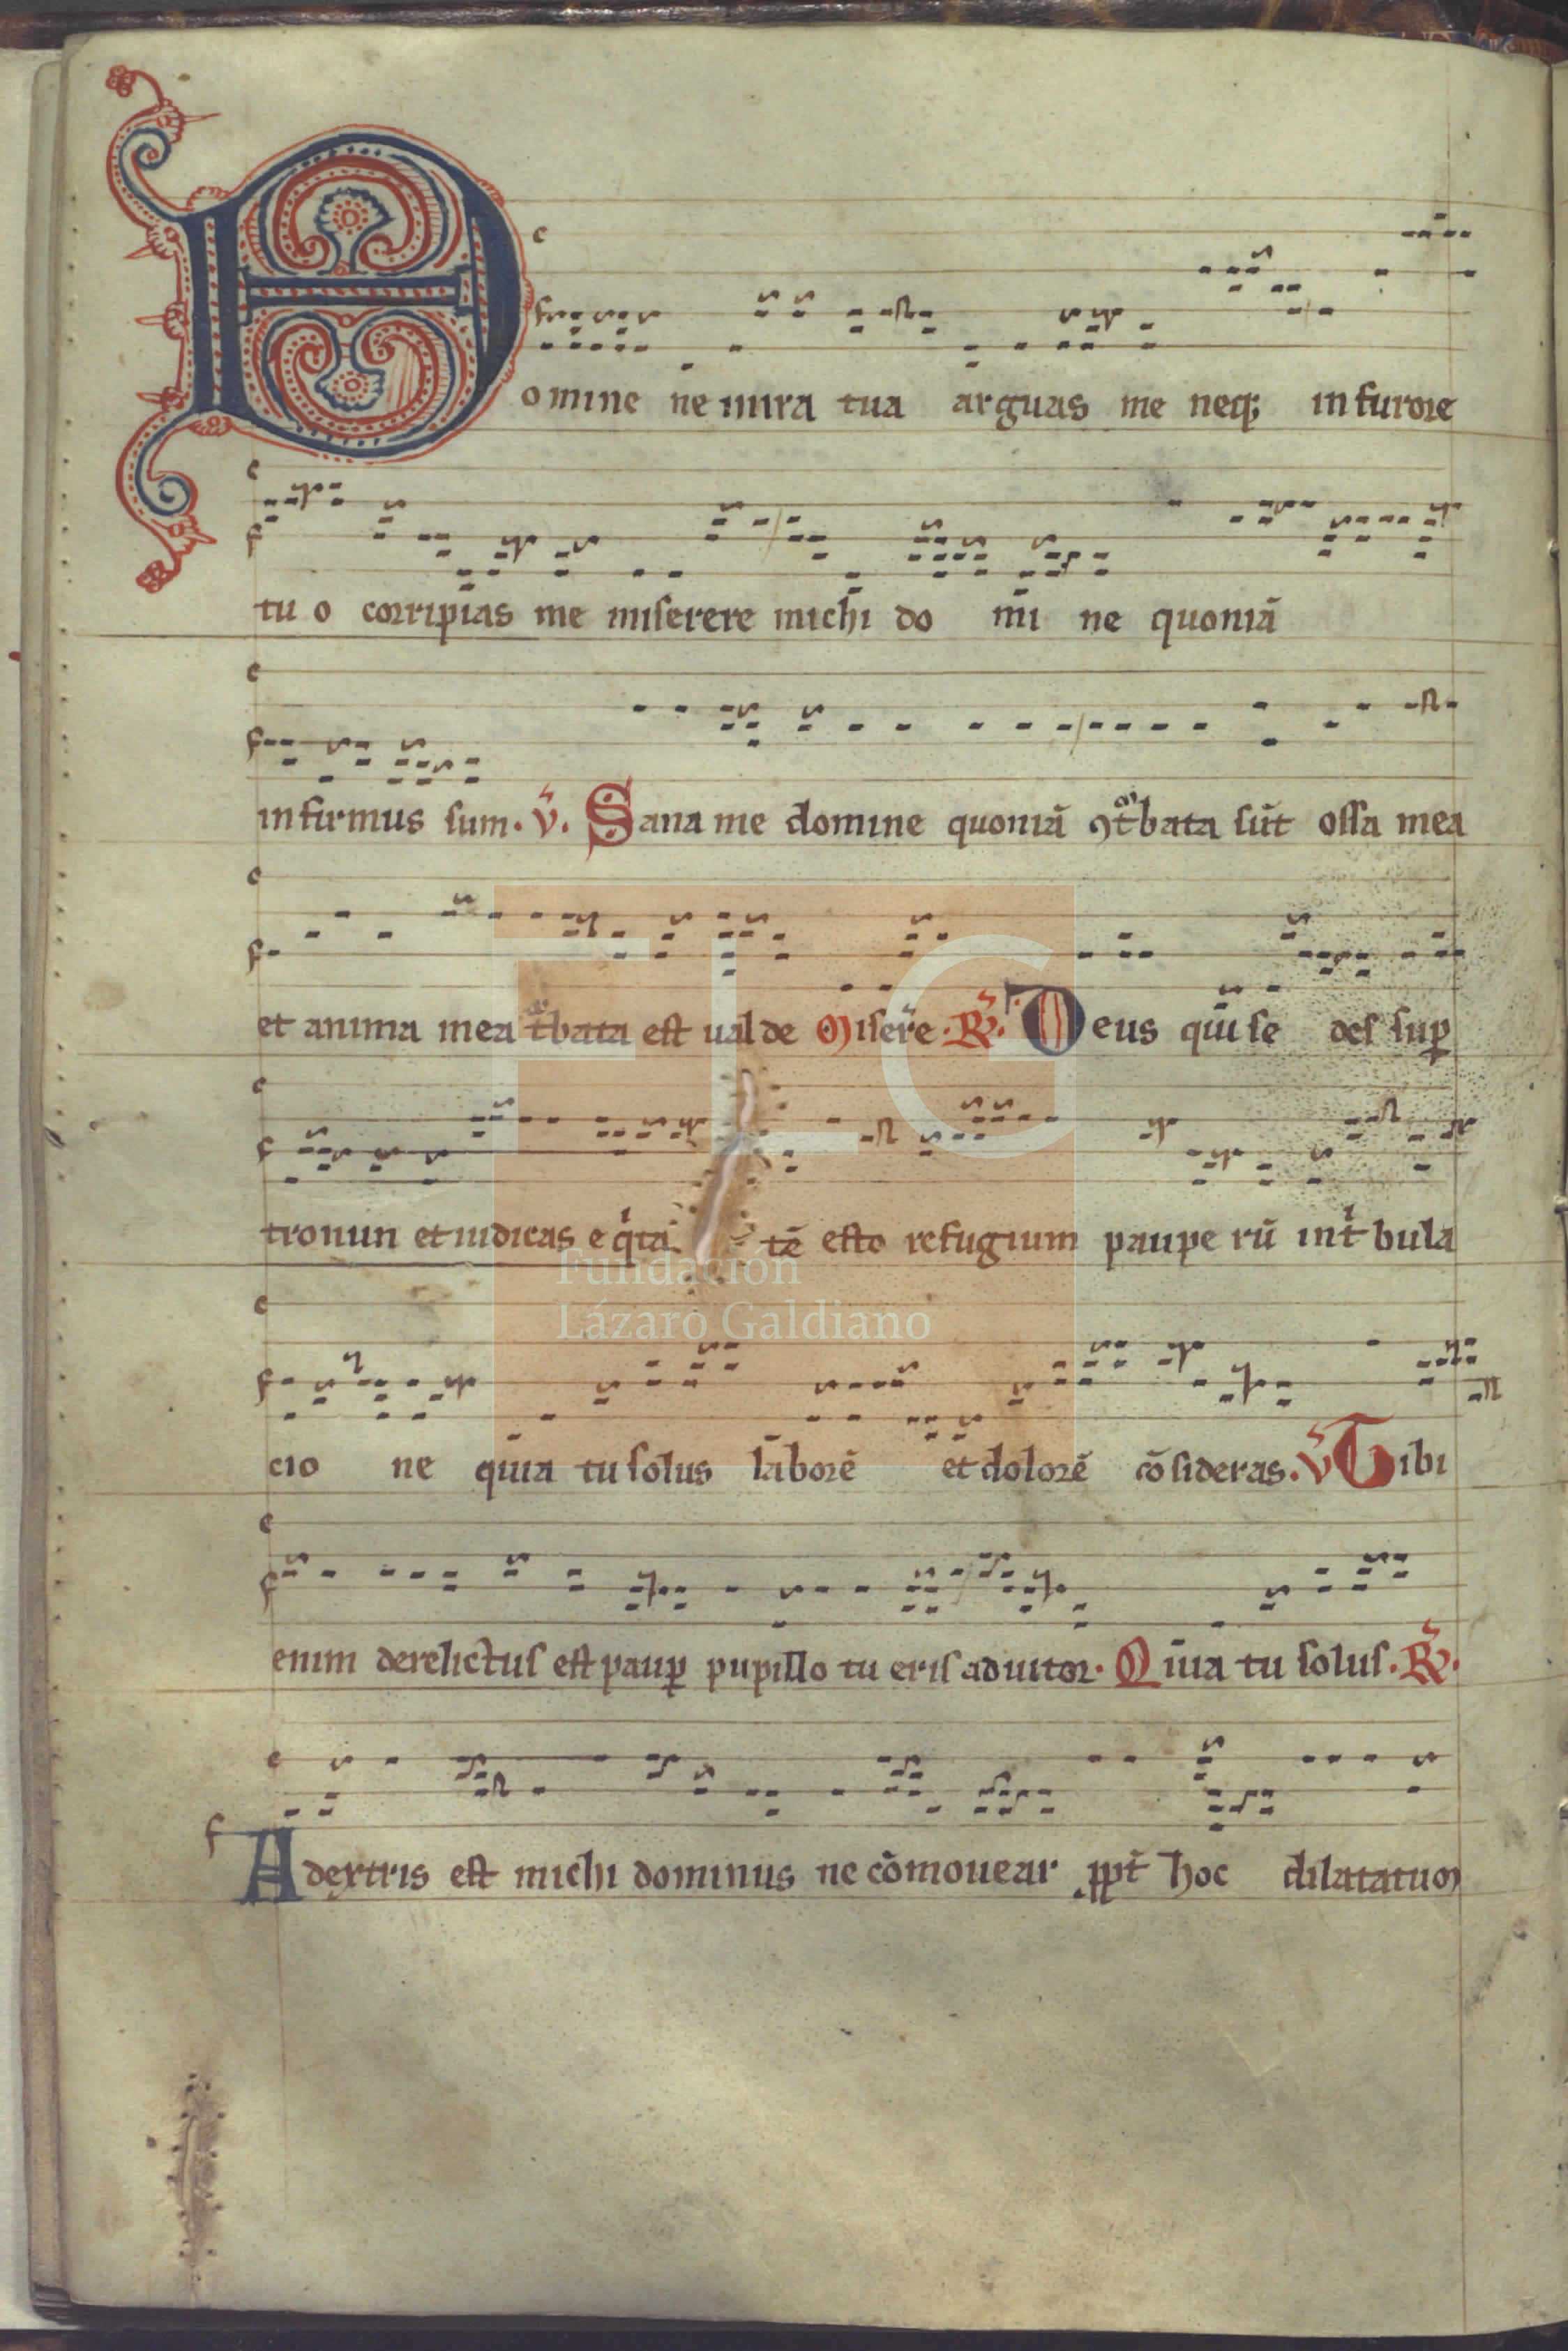 Domine ne in ira tua arguas me neq; in furore
tu o corripias me miserere michi do mi ne quoniā
infirmus sum. v̄. Sana me domine quoniā ꝯt͛bata sūt ossa mea
et anima mea t͛bata est ualde Miser̄e. R̄. Deus qui se des suꝑ
tronun et iudicas eqͥta tē esto refugium paupe rū in tͥbula
cio ne quia tu solus laborē et dolorē cōsideras. v̄ Tibi
enim derelictus est pauꝑ pupillo tu eris adiutor. Quia tu solus. R̄.
A dextris est michi dominus ne cōmouear ꝓpt̄ hoc dilatatum
FLG
Fundación
Lázaro Galdiano